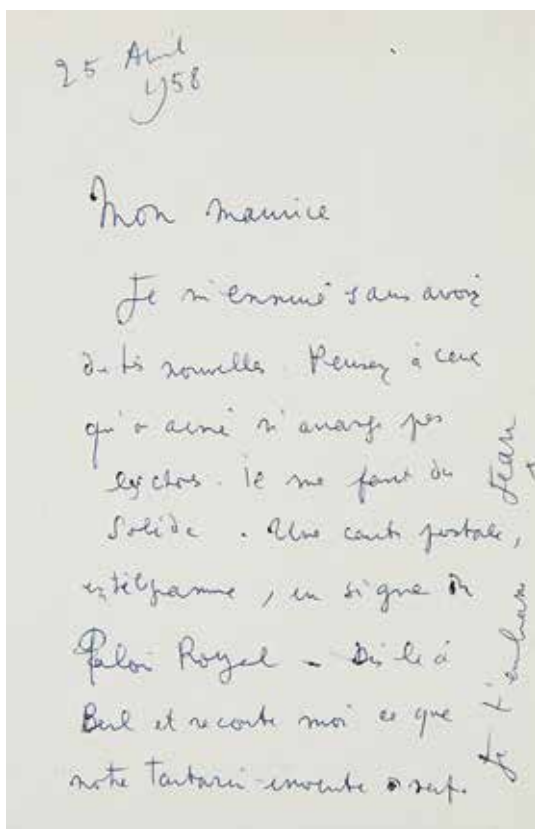 25 Avril
1958
Mon Maurice
Je m'ennuie sans avoir
de tes nouvelles. Penser à ceux
qu'on aime n'arrange pas
les choses. Il me faut du
solide. Une carte postale,
un télégramme, un signe du
Palais Royal — Dis le à
Berl et raconte moi ce que
notre Tartarin invente
Je t'embrasse Jean